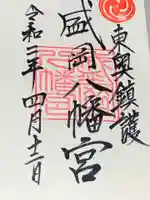 東奥鎮護
盛岡八幡宮
令和二年四月十二日